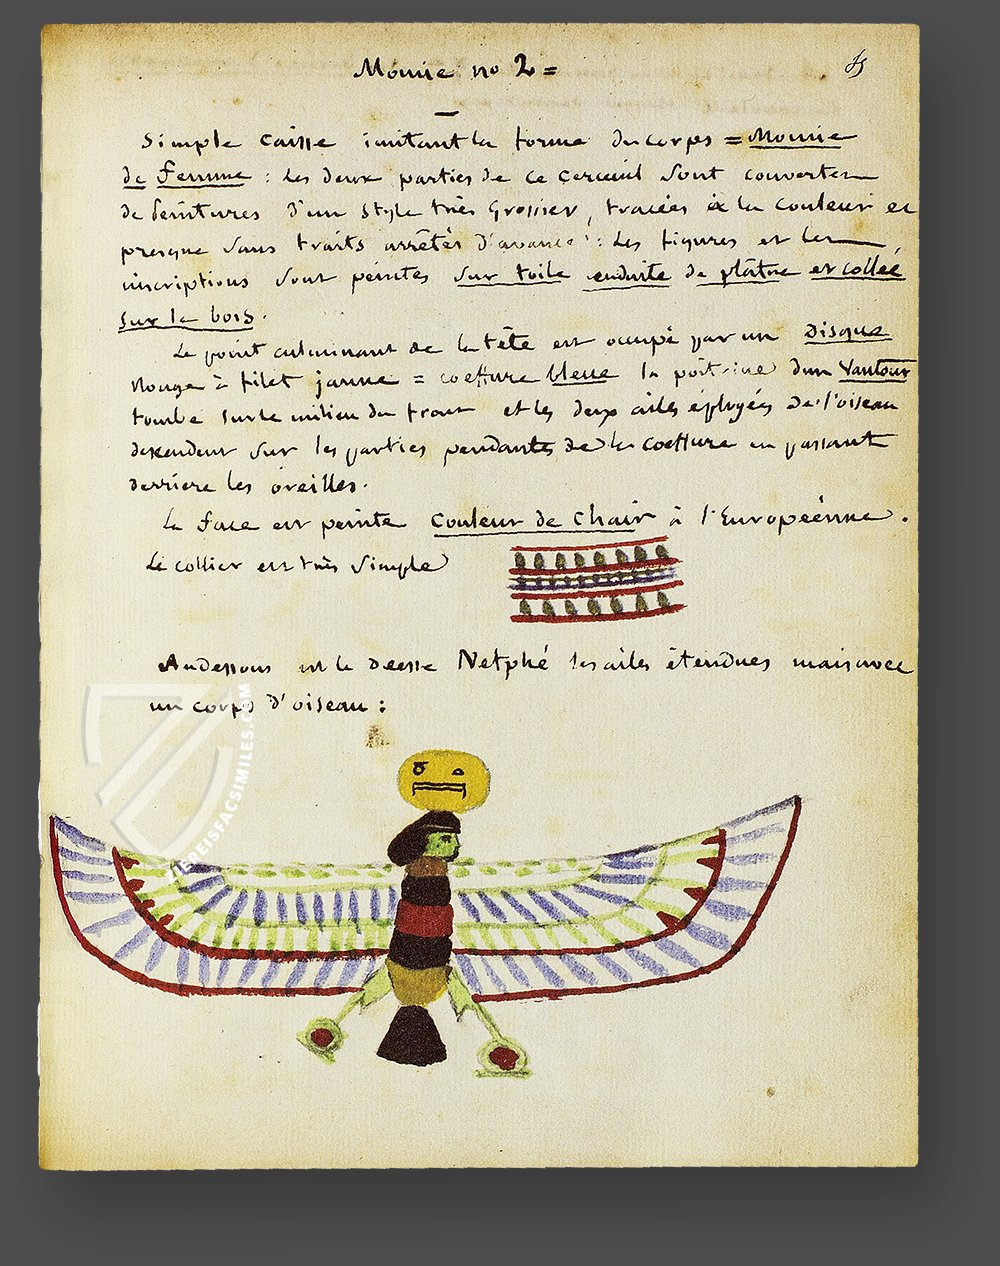 Momie no 2 =
Simple caisse imitant la forme du corps = Momie
de femme : les deux parties de ce cercueil sont couvertes
de peintures d'un style très grossier, tracées à la couleur et
presque sans traits arrêtés d'avance : Les figures et les
inscriptions sont peintes sur toile enduite de plâtre et collée
sur le bois.
Le point culminant de la tête est occupé par un Disque
rouge à filet jaune = coeffure bleue la poitrine d'un Vautour
tombe sur le milieu du front et les deux ailes éployées de l'oiseau
descendent sur les parties pendantes de la coeffure en passant
derriere les oreilles.
La face est peinte Couleur de Chair à l'Européenne.
Le collier est très simple
Audessous est la déesse Netphé les ailes étendues mais avec
un corps d'oiseau :
ZIEREISFACSIMILES.COM